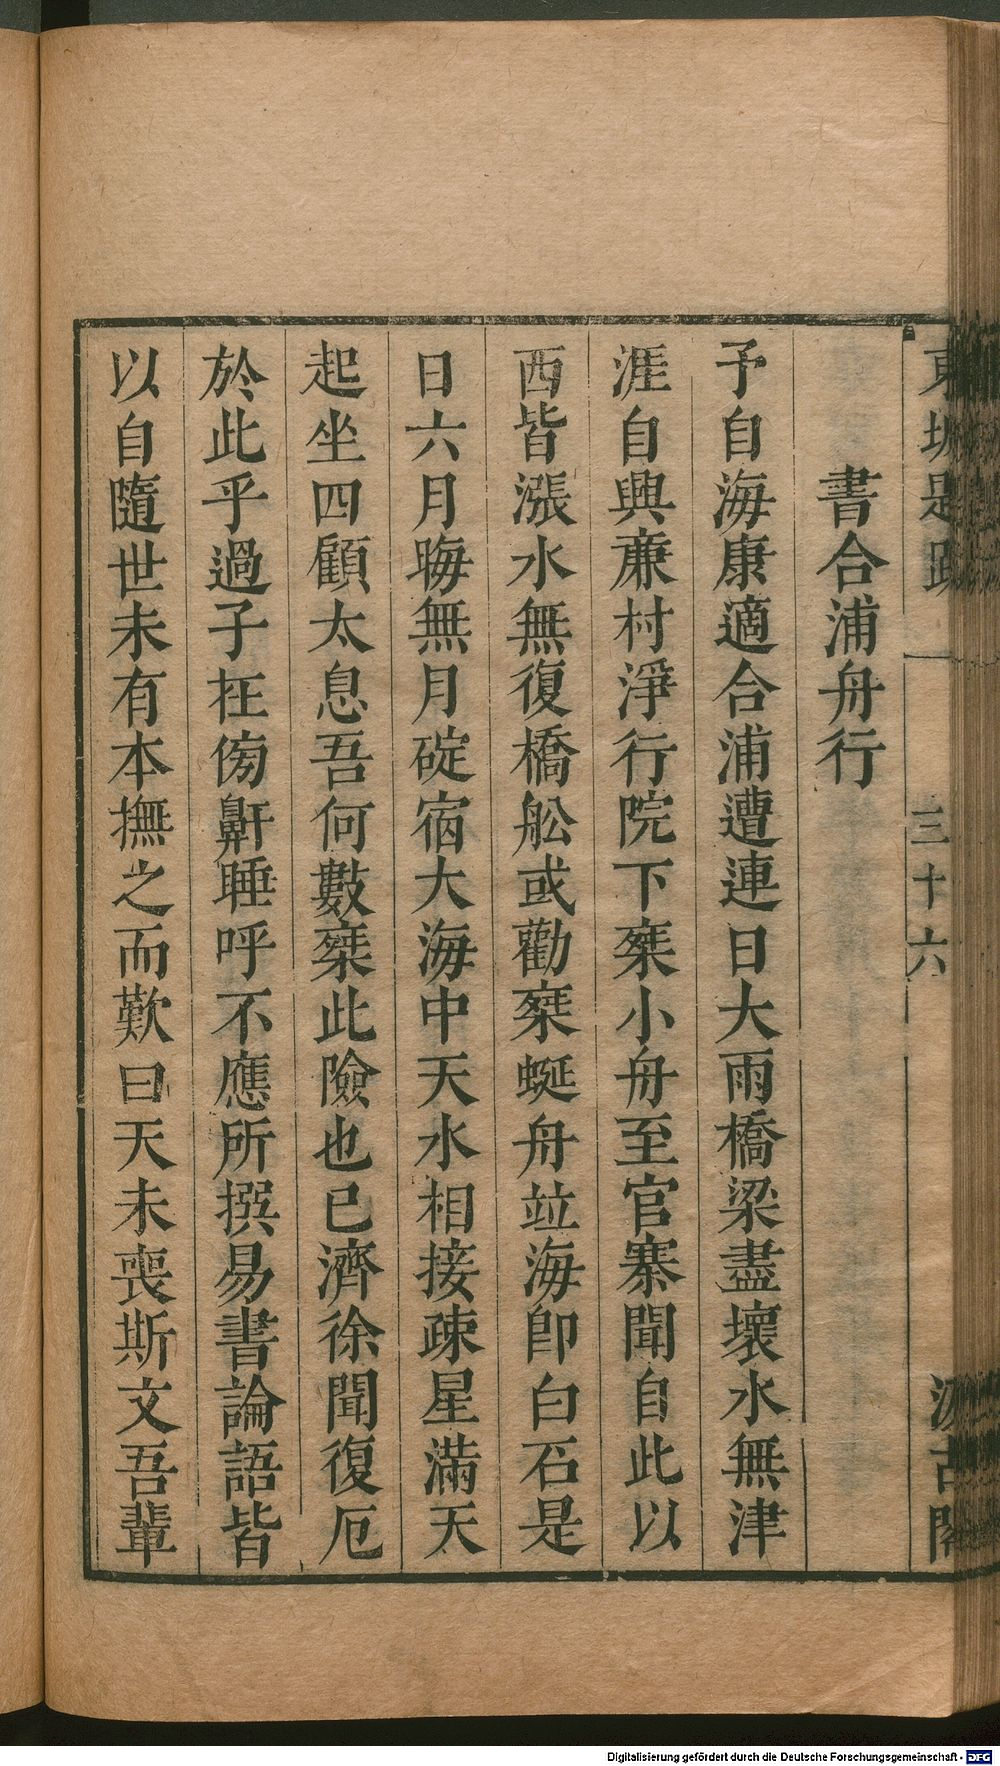 東坡題跋 一 三十六 汲古閣
書合浦舟行
予自海康適合浦遭連日大雨橋梁盡壞水無津
涯自興亷村淨行院下椉小舟至官寨聞自此以
西皆漲水無復橋舩或勸椉蜑舟竝海卽白石是
日六月晦無月碇宿大海中天水相接疎星滿天
起坐四顧太息吾何數椉此險也已濟徐聞復厄
於此乎過子在傍鼾睡呼不應所撰易書論語皆
以自隨世未有本撫之而歎曰天未喪斯文吾輩
Digitalisierung gefördert durch die Deutsche Forschungsgemeinschaft - DFG